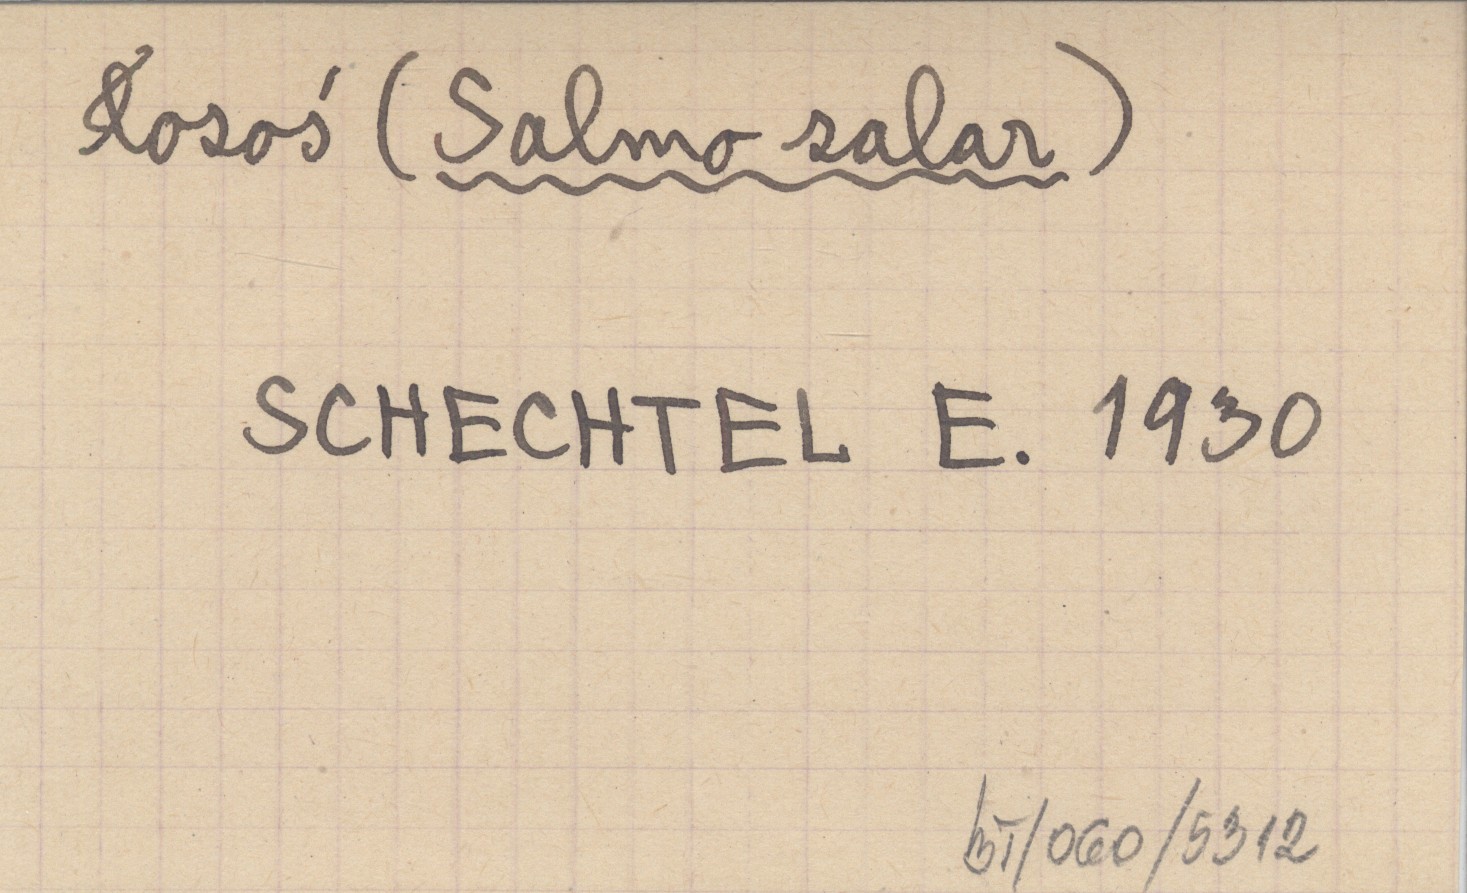 Łosoś (Salmo salar)
SCHECHTEL E. 1930
BT/060/5312